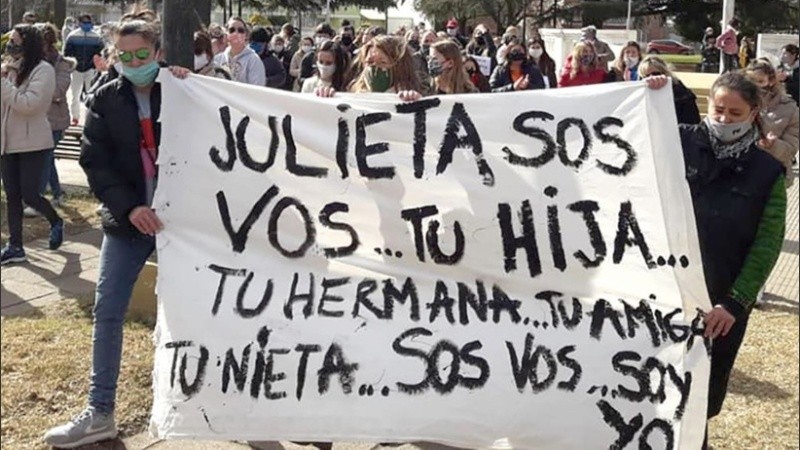 JULIETA, SOS
VOS...TU HIJA...
TU HERMANA...TU AMIGA
TU NIETA...SOS VOS...SOY
YO